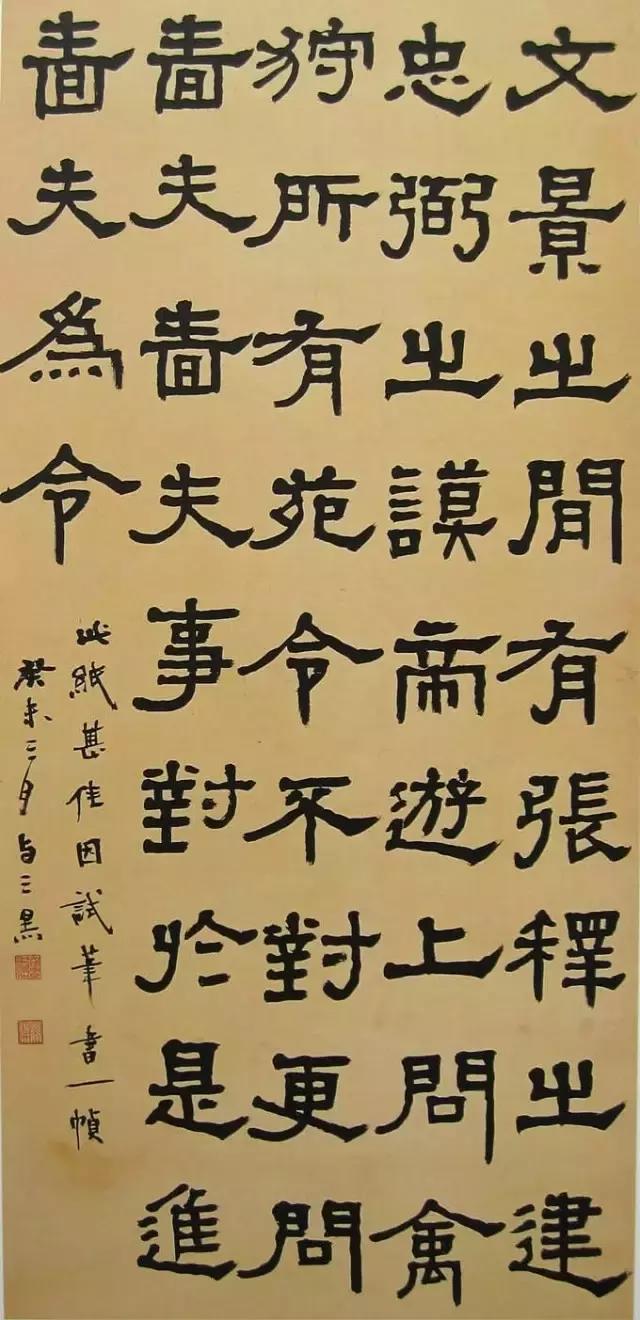 文景之閒有張釋之建
忠弼之謨帝遊上問禽
狩所有苑令不對更問
嗇夫嗇夫事對於是進
嗇夫爲令
此紙甚佳因試筆書一幀
癸未三月